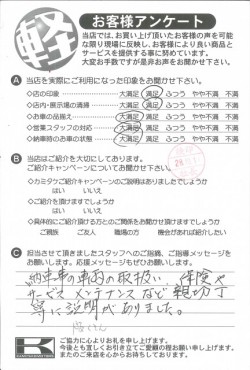 軽
お客様アンケート
当店では、お買い上げ頂いたお客様の声を可能
な限り現場に反映し、お客様により良い商品と
サービスを提供する事に努めています。
大変お手数ですが是非お声をお聞かせ下さい。
A 当店を実際にご利用になった印象をお聞かせ下さい。
◇店の印象 大満足 満足 ふつう やや不満 不満
◇店内・展示場の清掃 大満足 満足 ふつう やや不満 不満
◇お車の品揃え 大満足 満足 ふつう やや不満 不満
◇営業スタッフの対応 大満足 満足 ふつう やや不満 不満
◇納車時のお車の状態 大満足 満足 ふつう やや不満 不満
B 当店はご紹介を大切にしております。
ご紹介キャンペーンについてお聞かせ下さい。
◇カミタケご紹介キャンペーンのご説明はありましたでしょうか
はい いいえ
◇ご紹介を頂けますでしょうか
はい いいえ
◇具体的にご紹介頂ける方とのご関係をお聞かせ頂けますでしょうか
ご親族 ご友人 職場の方 機会があれば紹介したい
C 担当させて頂きましたスタッフへのご指摘、ご指導メッセージを
お願いします。応援メッセージもぜひお願いします。
納車車の車両の取扱い 保険や
サービス メンテナンスなど親切丁
寧に説明がありました。
K
ご協力に心よりお礼を申し上げます。
今後とも宜しくお引き立てご愛顧の程お願い申し上げます。
またのご来店を心からお待ちしております。